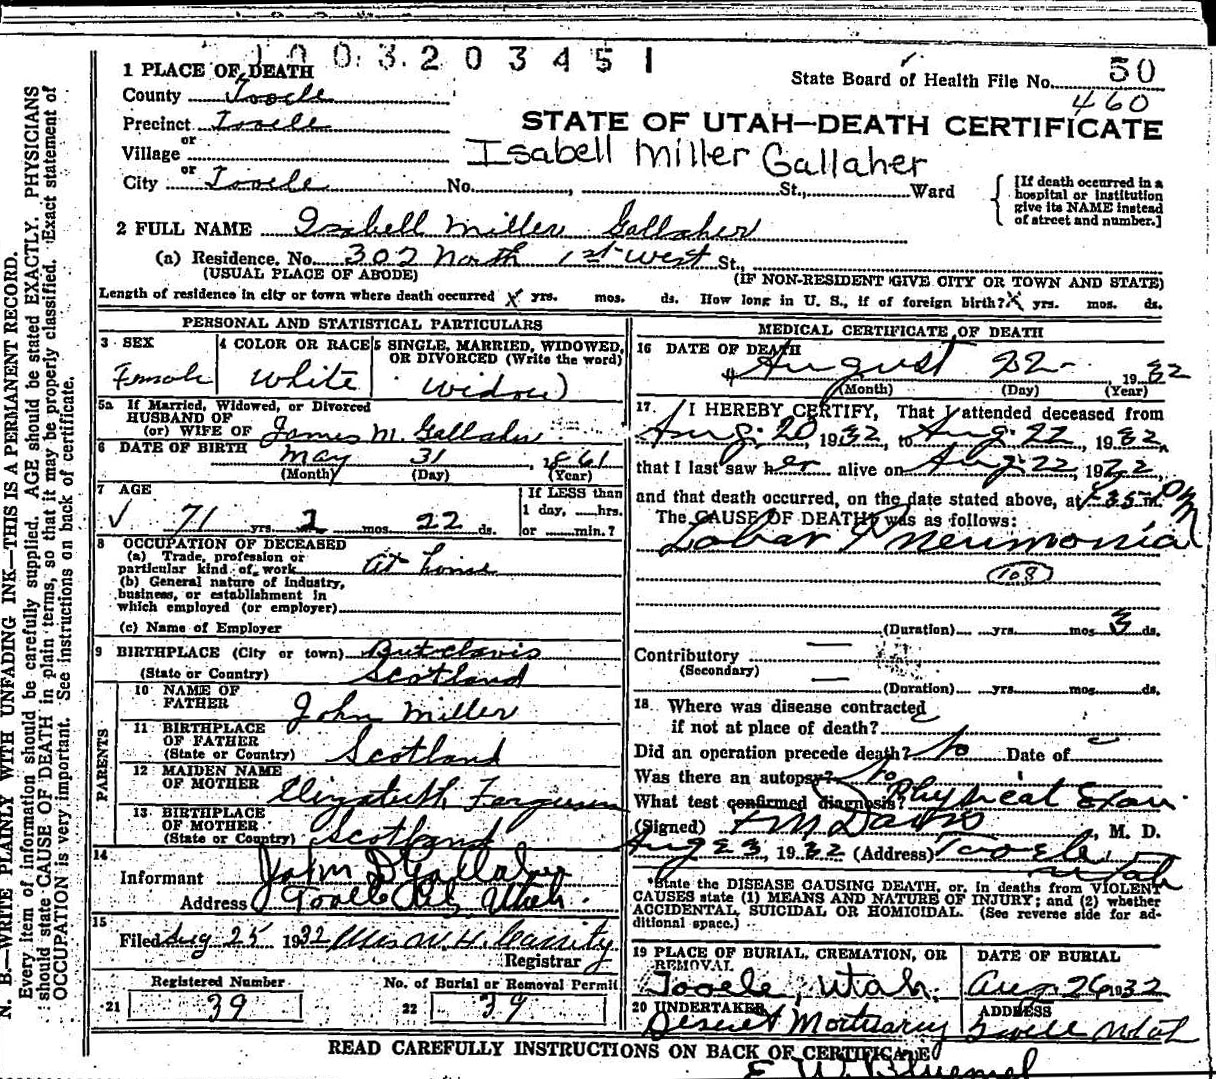 1003203451
1 PLACE OF DEATH
State Board of Health File No. 50
County Tooele
460
Precinct Tooele
STATE OF UTAH—DEATH CERTIFICATE
or
Village
Isabell Miller Gallaher
or
City Tooele No. , St., Ward
[If death occurred in a hospital or institution give its NAME instead of street and number.]
2 FULL NAME Isabell Miller Gallaher
(a) Residence. No. 302 North 1st West St.,
(USUAL PLACE OF ABODE) (IF NON-RESIDENT GIVE CITY OR TOWN AND STATE)
Length of residence in city or town where death occurred X yrs. mos. ds. How long in U. S., if of foreign birth? X yrs. mos. ds.
PERSONAL AND STATISTICAL PARTICULARS
3 SEX
Female
4 COLOR OR RACE
White
5 SINGLE, MARRIED, WIDOWED, OR DIVORCED (Write the word)
Widow
5a If Married, Widowed, or Divorced
HUSBAND OF
(or) WIFE OF James M. Gallaher
6 DATE OF BIRTH May 31, 1861
(Month) (Day) (Year)
7 AGE
71 yrs. 2 mos. 22 ds.
If LESS than
1 day, hrs.
or min.?
8 OCCUPATION OF DECEASED
(a) Trade, profession or
particular kind of work At home
(b) General nature of industry,
business, or establishment in
which employed (or employer)
(c) Name of Employer
9 BIRTHPLACE (City or town)
(State or Country) Scotland
PARENTS
10 NAME OF
FATHER John Miller
11 BIRTHPLACE
OF FATHER
(State or Country) Scotland
12 MAIDEN NAME
OF MOTHER Elizabeth Ferguson
13 BIRTHPLACE
OF MOTHER
(State or Country) Scotland
14
Informant John D Gallaher
Address Tooele Utah.
15
Filed Aug 25 1932
Registrar
Registered Number
21 39
No. of Burial or Removal Permit
22 39
MEDICAL CERTIFICATE OF DEATH
16 DATE OF DEATH
August 22 1932
(Month) (Day) (Year)
17. I HEREBY CERTIFY, That I attended deceased from
Aug. 20, 1932, to Aug. 22, 1932,
that I last saw her alive on Aug. 22, 1922,
and that death occurred, on the date stated above, at
The CAUSE OF DEATH was as follows:
Lobar Pneumonia
108
(Duration) yrs. mos. 3 ds.
Contributory
(Secondary)
(Duration) yrs. mos. ds.
18 Where was disease contracted
if not at place of death?
Did an operation precede death? No Date of
Was there an autopsy? No
What test confirmed diagnosis? Physical Exam.
(Signed) Davis, M. D.
Aug 23, 1932 (Address) Tooele,
Utah
*State the DISEASE CAUSING DEATH, or, in deaths from VIOLENT
CAUSES state (1) MEANS AND NATURE OF INJURY; and (2) whether
ACCIDENTAL, SUICIDAL OR HOMICIDAL. (See reverse side for additional space.)
19 PLACE OF BURIAL, CREMATION, OR
REMOVAL
Tooele, Utah.
DATE OF BURIAL
Aug. 26 1932
20 UNDERTAKER
Deseret Mortuary
ADDRESS
Tooele Utah
READ CAREFULLY INSTRUCTIONS ON BACK OF CERTIFICATE
E. W.
N. B.—WRITE PLAINLY WITH UNFADING INK—THIS IS A PERMANENT RECORD.
Every item of information should be carefully supplied. AGE should be stated EXACTLY. PHYSICIANS
should state CAUSE OF DEATH in plain terms, so that it may be properly classified. Exact statement of
OCCUPATION is very important. See instructions on back of certificate.